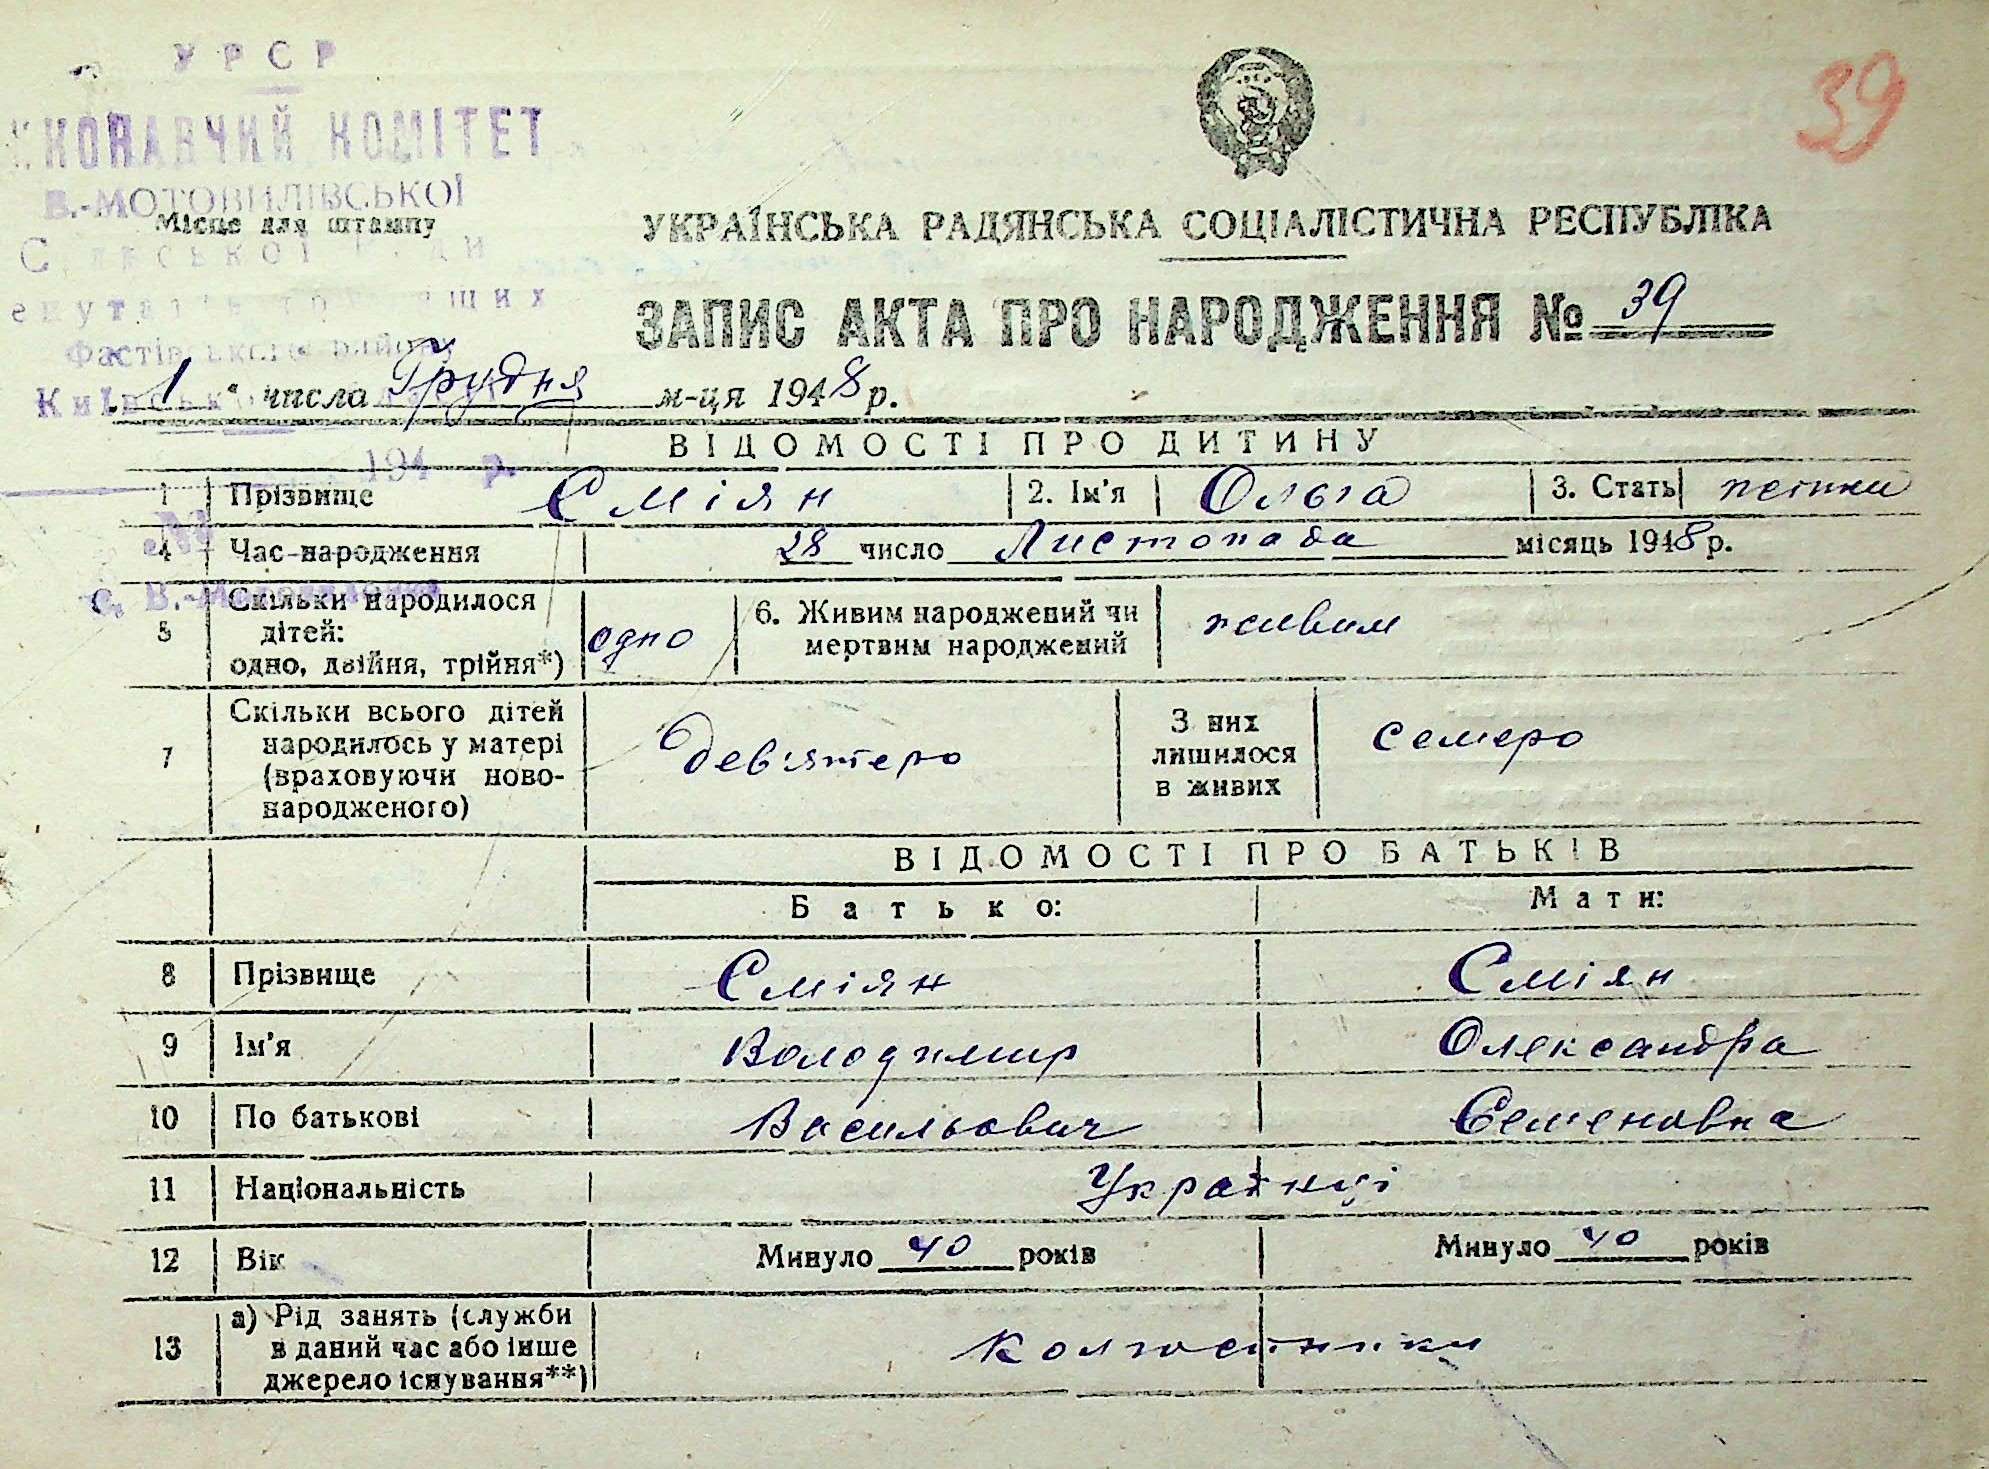 УРСР
ВИКОНАВЧИЙ КОМІТЕТ
В.-МОТОВИЛІВСЬКОЇ
Сільської Ради
депутатів трудящих
Фастівського району
Київської області
194 р.
№
с. В.-Мотовилівка
39
Місце для штампу
УКРАЇНСЬКА РАДЯНСЬКА СОЦІАЛІСТИЧНА РЕСПУБЛІКА
ЗАПИС АКТА ПРО НАРОДЖЕННЯ № 39
„1“ числа Грудня м-ця 1948 р.
ВІДОМОСТІ ПРО ДИТИНУ
1 Прізвище Сміян 2. Ім'я Ольга 3. Стать
4 Час народження 28 число Листопада місяць 1948 р.
5 Скільки народилося дітей: одно, двійня, трійня*) одно 6. Живим народжений чи мертвим народжений живим
7 Скільки всього дітей народилось у матері (враховуючи ново-народженого) дев'ятеро З них лишилося в живих семеро
ВІДОМОСТІ ПРО БАТЬКІВ
Батько: Мати:
8 Прізвище Сміян Сміян
9 Ім'я Володимир Олександра
10 По батькові Васильович Семеновна
11 Національність Українці
12 Вік Минуло 40 років Минуло 40 років
13 а) Рід занять (служби в даний час або інше джерело існування**) Колгоспники